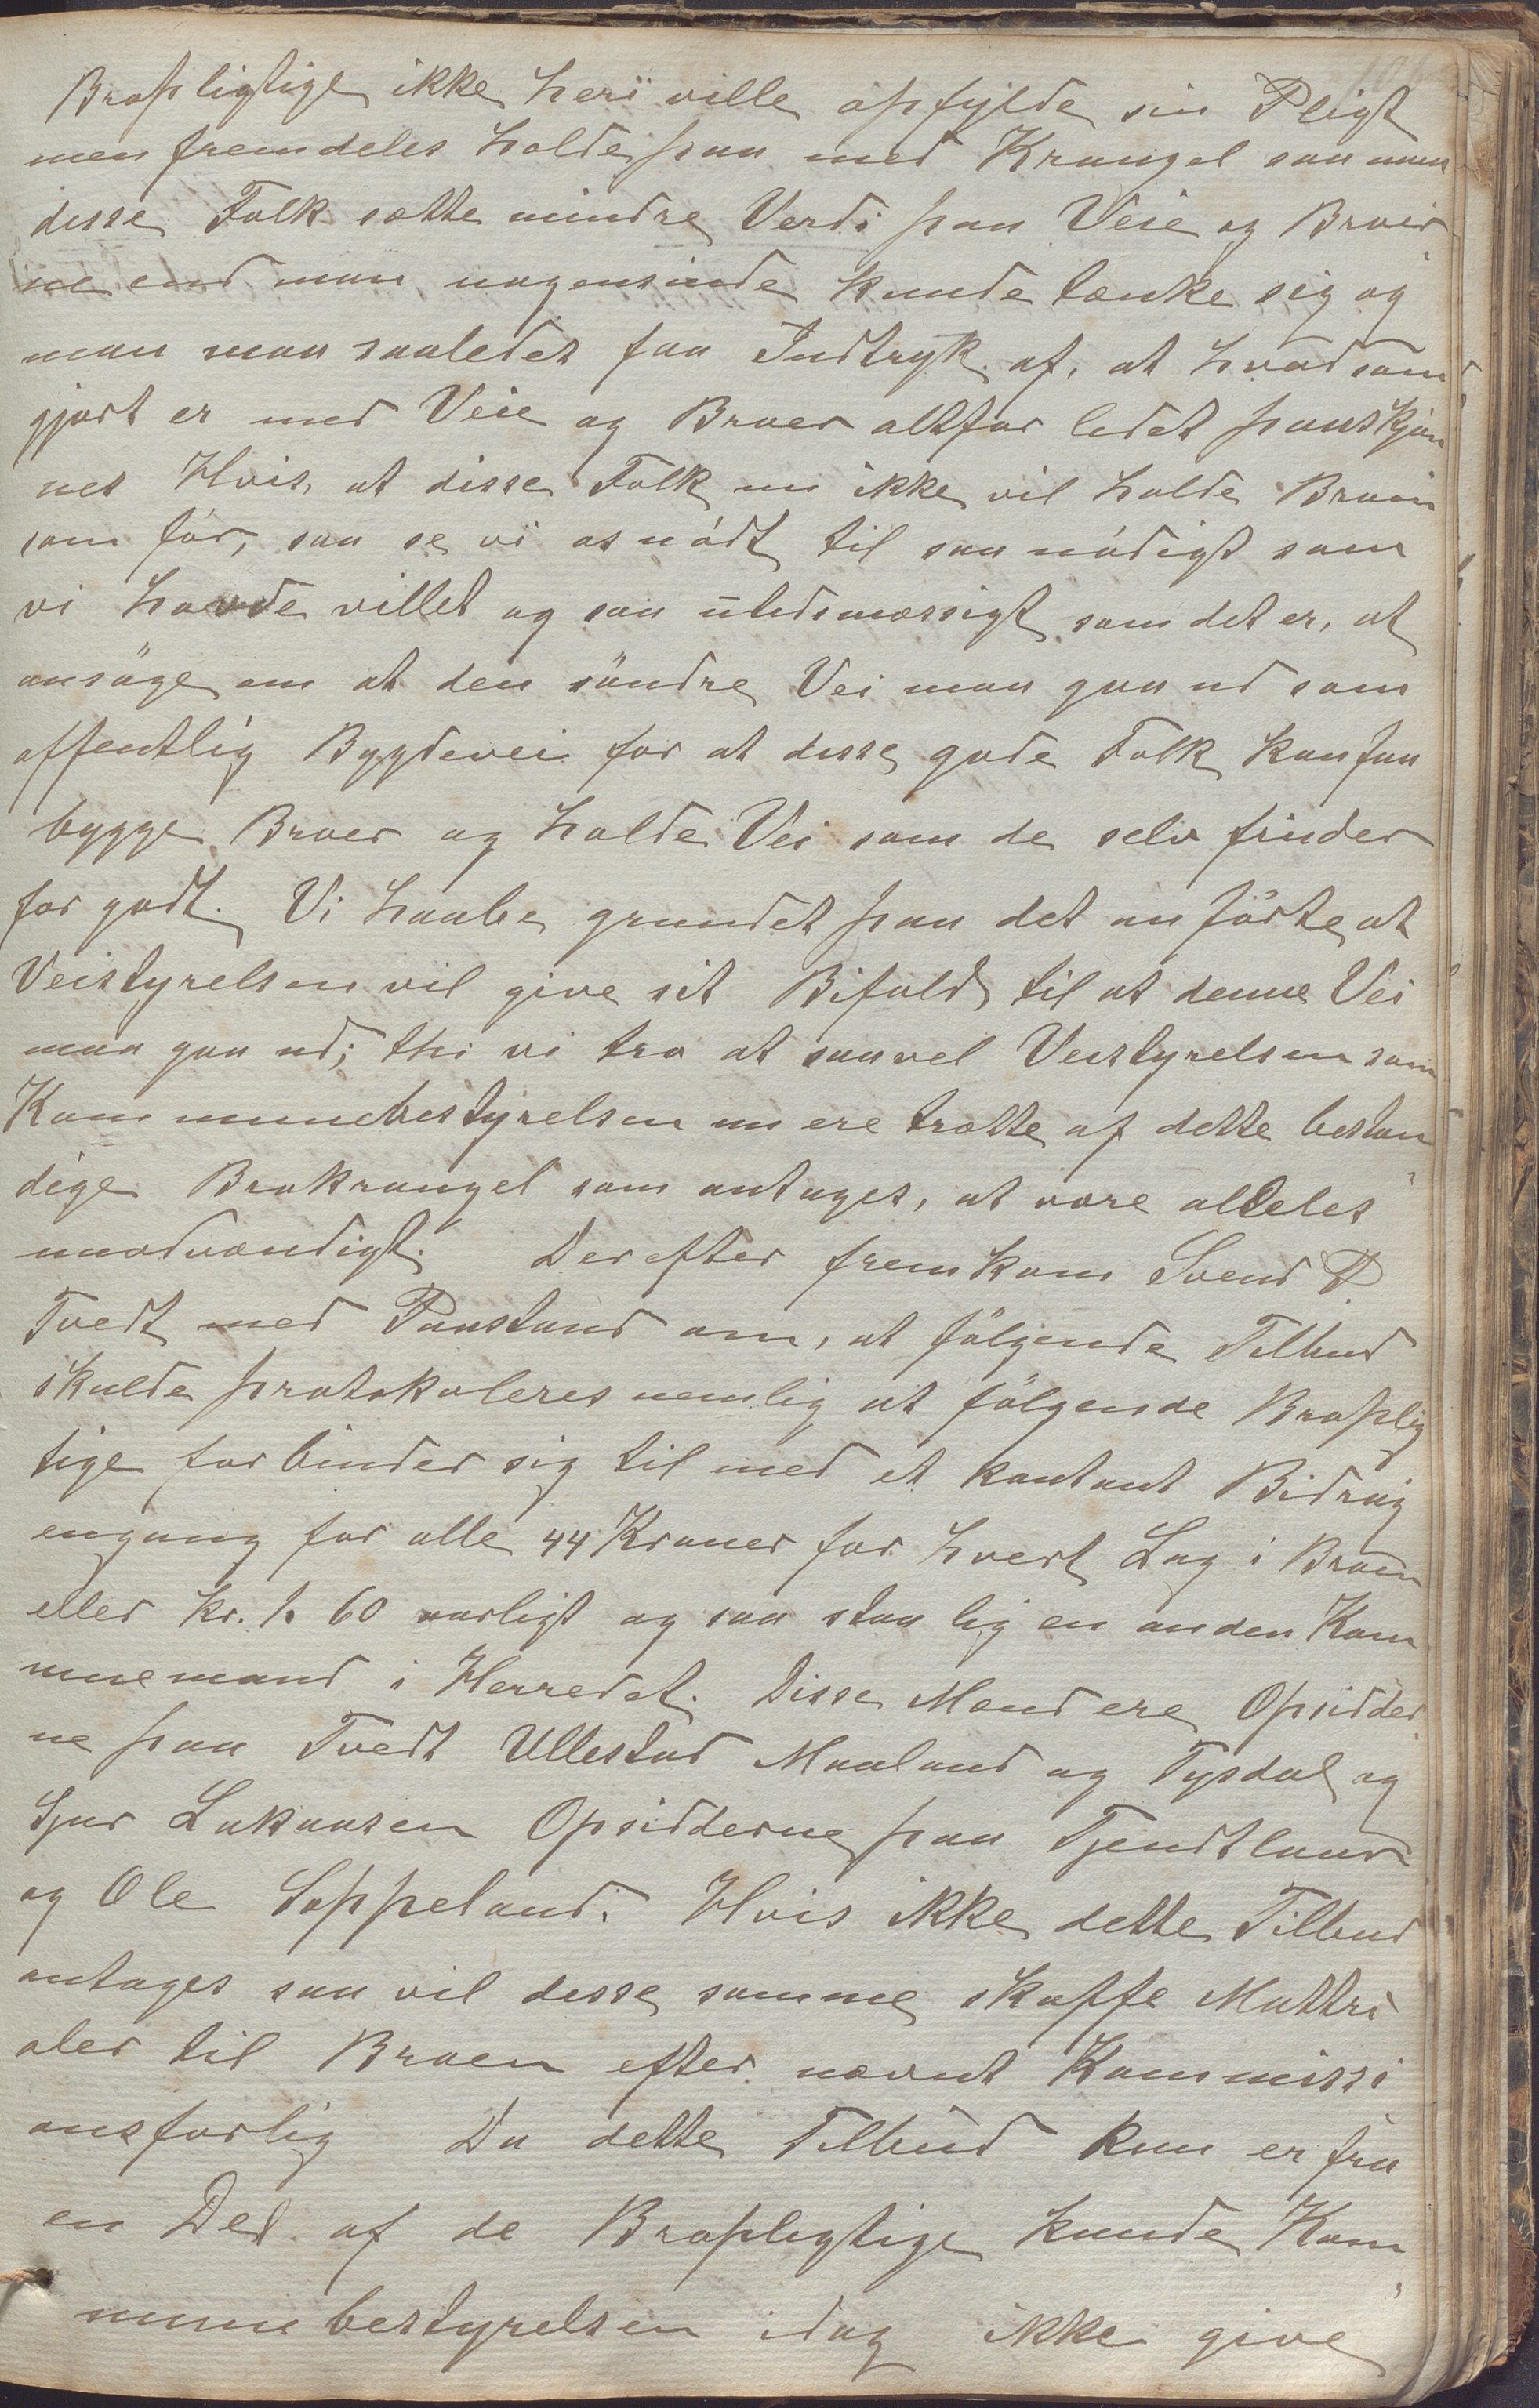 Bropligtige ikke heri ville opfylde sin Pligt
men fremdeles holde paa med Krangel saa maa
disse Folk sætte mindre Verdi paa Veie og Broer
ne end man nogensinde kunde tænke sig og
man maa saaledes faa Indtryk af, at hvad som
gjort er med Veie og Broer altfor lidet paaskjön
nes Hvis, at disse Folk nu ikke vil holde Broen
som för, saa se vi os nödt til saa nödigt som
vi havde villet og saa utidsmæssigt som det er, at
ansöge om at den söndre Vei maa gaa ud som
offentlig Bygdevei for at disse gode Folk kan faa
bygge Broer og holde Vei som de selv finder
for godt. Vi haabe grundet paa det anförte at
Veistyrelsen vil give sit Bifald til at denne Vei
maa gaa ud; thi vi tro at saavel Veistyrelsen som
Kommunebestyrelsen nu ere trætte af dette bestan
dige Brokrangel som antages, at være aldeles
unödvændigt. Derefter fremkom Svend P.
Tvedt med Paastand om, at fölgende Tilbud
skulde protokoleres nemlig at fölgende Broplig
tige forbinder sig til med et kontant Bidrag
engang for alle 44 Kroner for hvert Lag i Broen
eller kr. 1. 60 aarligt og saa staa lig en anden Kom
munemand i Herredet. Disse Mænd ere Opsidder
ne paa Tvedt Ullestad Maaland og Tysdal og
Sjur Lakaasen Opsidderne paa Tjendtland
og Ole Soppeland. Hvis ikke dette Tilbud
antages saa vil disse samme skaffe Mattri
aler til Broen efter nævnt Kommissi
onsforlig Da dette Tilbud kun er fra
en Del af de Bropligtige kunde Kom
munebestyrelsen idag ikke give